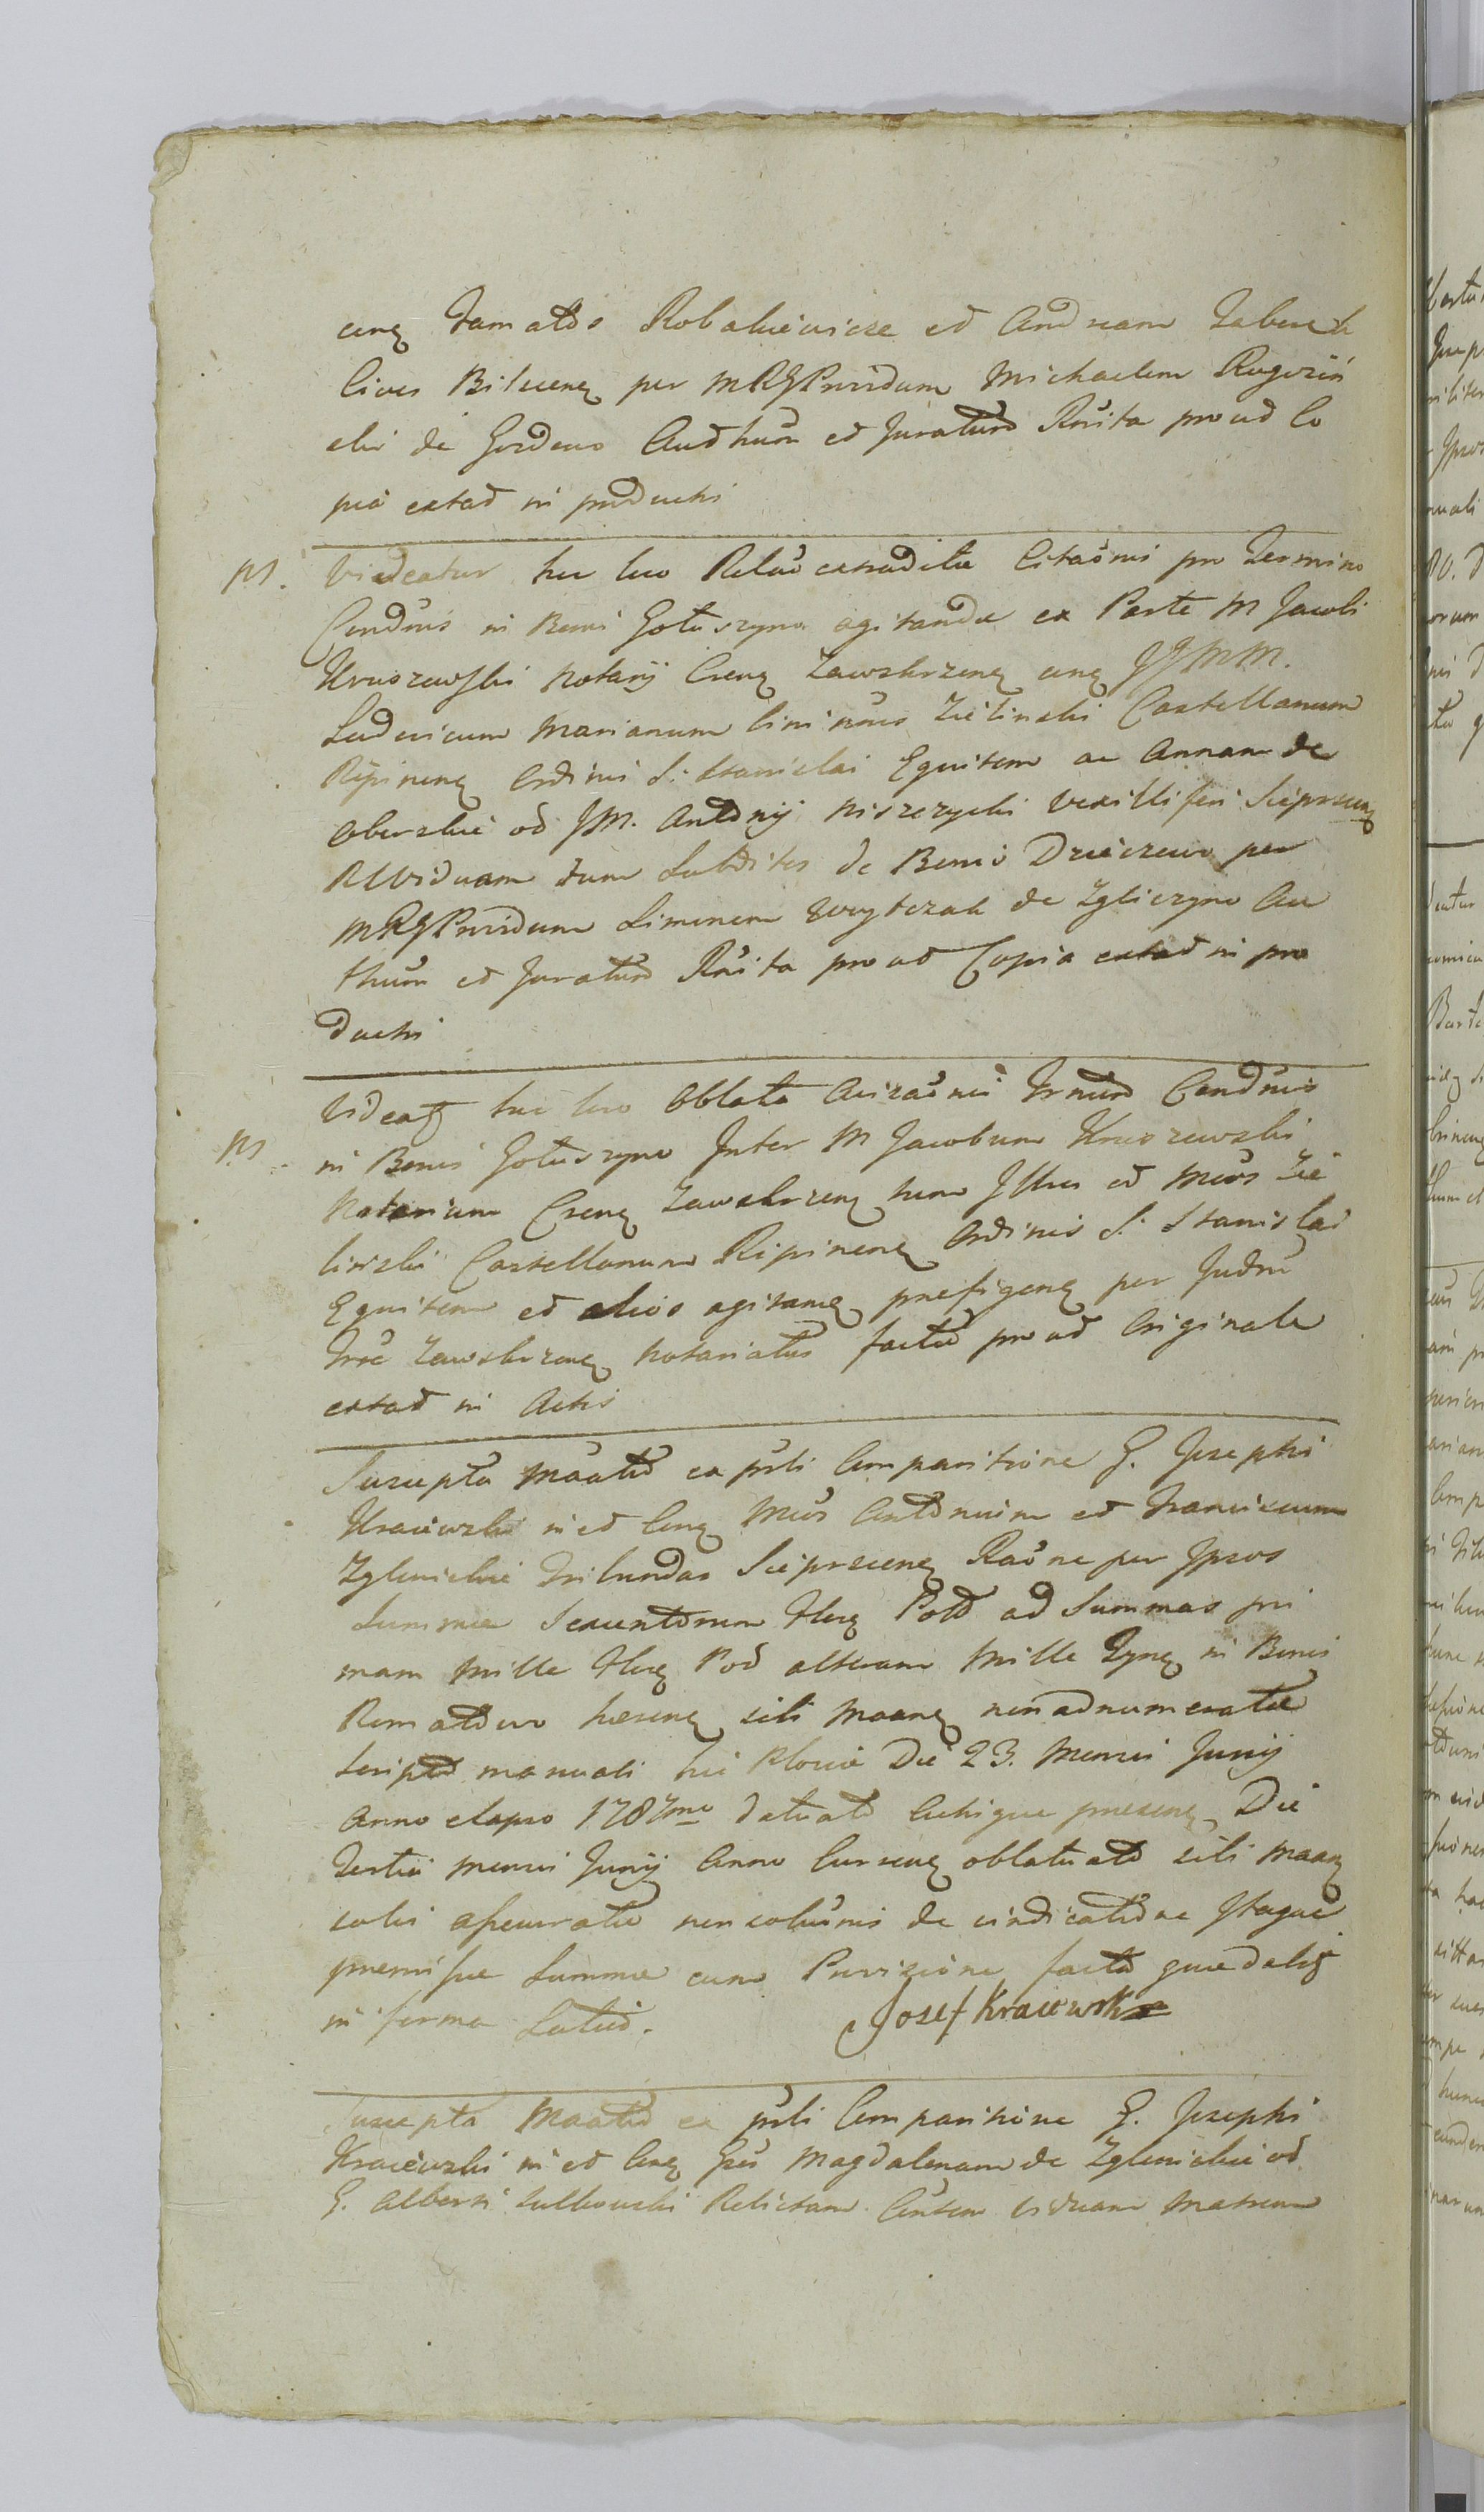 cunq Famatos Robakiewicze et Andream Zaberek
Cives Bilscenq per MRGProvidum Michaelem Rogozin
ski de Gordewo Authum et Juratum Rnita prout Co
pia extat in producti
M. Videatur hic loco Relao extraditae Citaonis pro Termino
Condnis in Bonis Gotuszyn agitandae ex Parte M Jacobi
Kruszewski Notarij Crenq Zawskrzenq cunq JJMM.
Ludovicum Marianum binimus Zielinski Castellanum
Ripinenq Ordinis S. Stanislai Equitem ac Annam de
Oborskie od JM. Antonij Niszczycki Vexilliferi Sieprcenq
RUViduam tum Subditos de Bonis Dzieczewo per
MRGProvidum Simonem Woytczak de Zgliczyno Au
thum et Juratum Rnita prout Copia extat in pro
ducti
M. Videatq hic loco Oblata Avizaonis Trmini Condnis
in Bonis Gotuszyno Inter M Jacobum Kruszewski
Notarium Crenq Zawskrzenq tum Illres et Mcos Zie
linski Castellanum Ripinenq Ordinis S. Stanislai
Equitem et alios agitanq praefigenq per Judm
Trre Zawskrzenq Notariatus facta prout Originale
extat in Actis
Suscepta Maatio ex psti Comparitione G. Josephi
Kraiewski in et conq Mcos Antonium et Franciscum
Zglenickie Tribunidas Sieprcenq Raone per Ipsos
Summae Sexcentorum flenq Polo ad Summas pri
mam Mille flenq Pod alteram Mille Tynq in Bonis
Romatowo haerenq sibi Maanq non adnumeratae
Scripto manuali hic Plociae Die 23. Mensis Junij
Anno elapso 1787mo datuato Actisque praesenq Die
Tertia Mensis Junij Anno Currenq oblatuato sibi Maanq
solvi assecuratae non solutionis de vindicatione Itaque
praemissae Summae cum Provisione facta quae dabiq
in forma Latius. Josef Kraiewski
Suscepta Maatio ex psti Comparitione G. Josephi
Kraiewski in et conq Gsos Magdalenam de Zglenickie od
G. Alberti Sulkowski Relictam Consem viduam Matrem